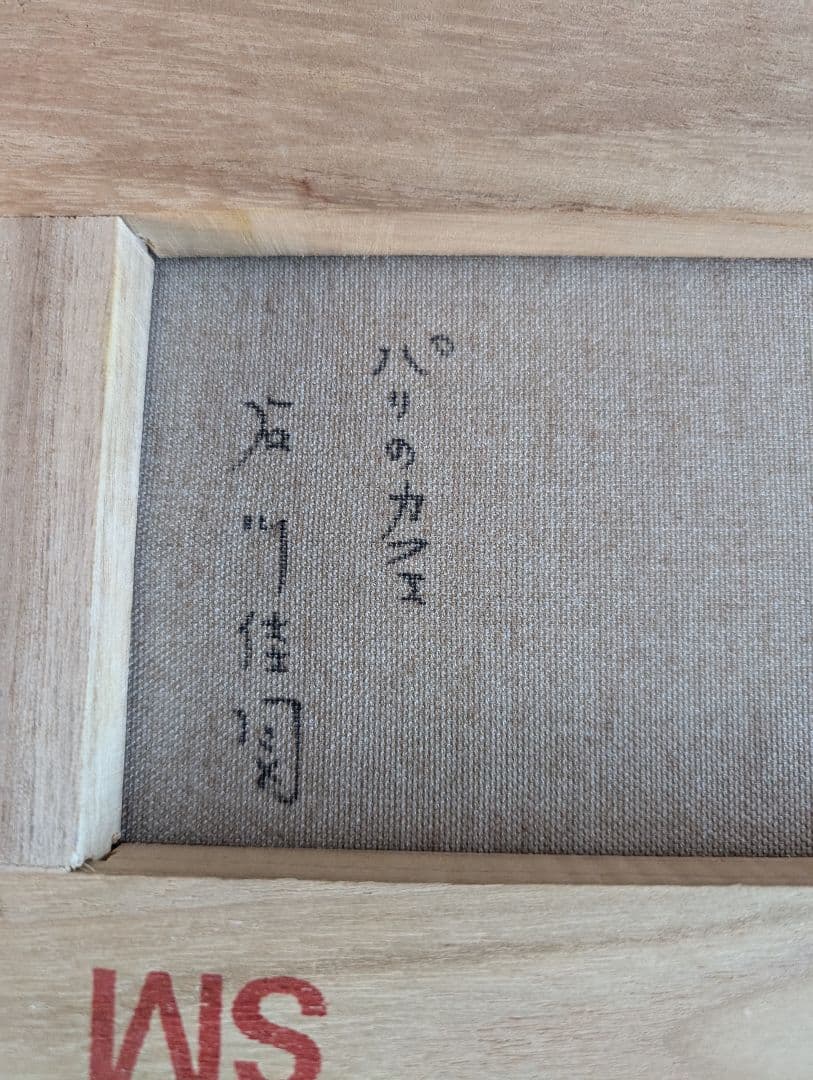 パリのカフェ
石川佳
SM